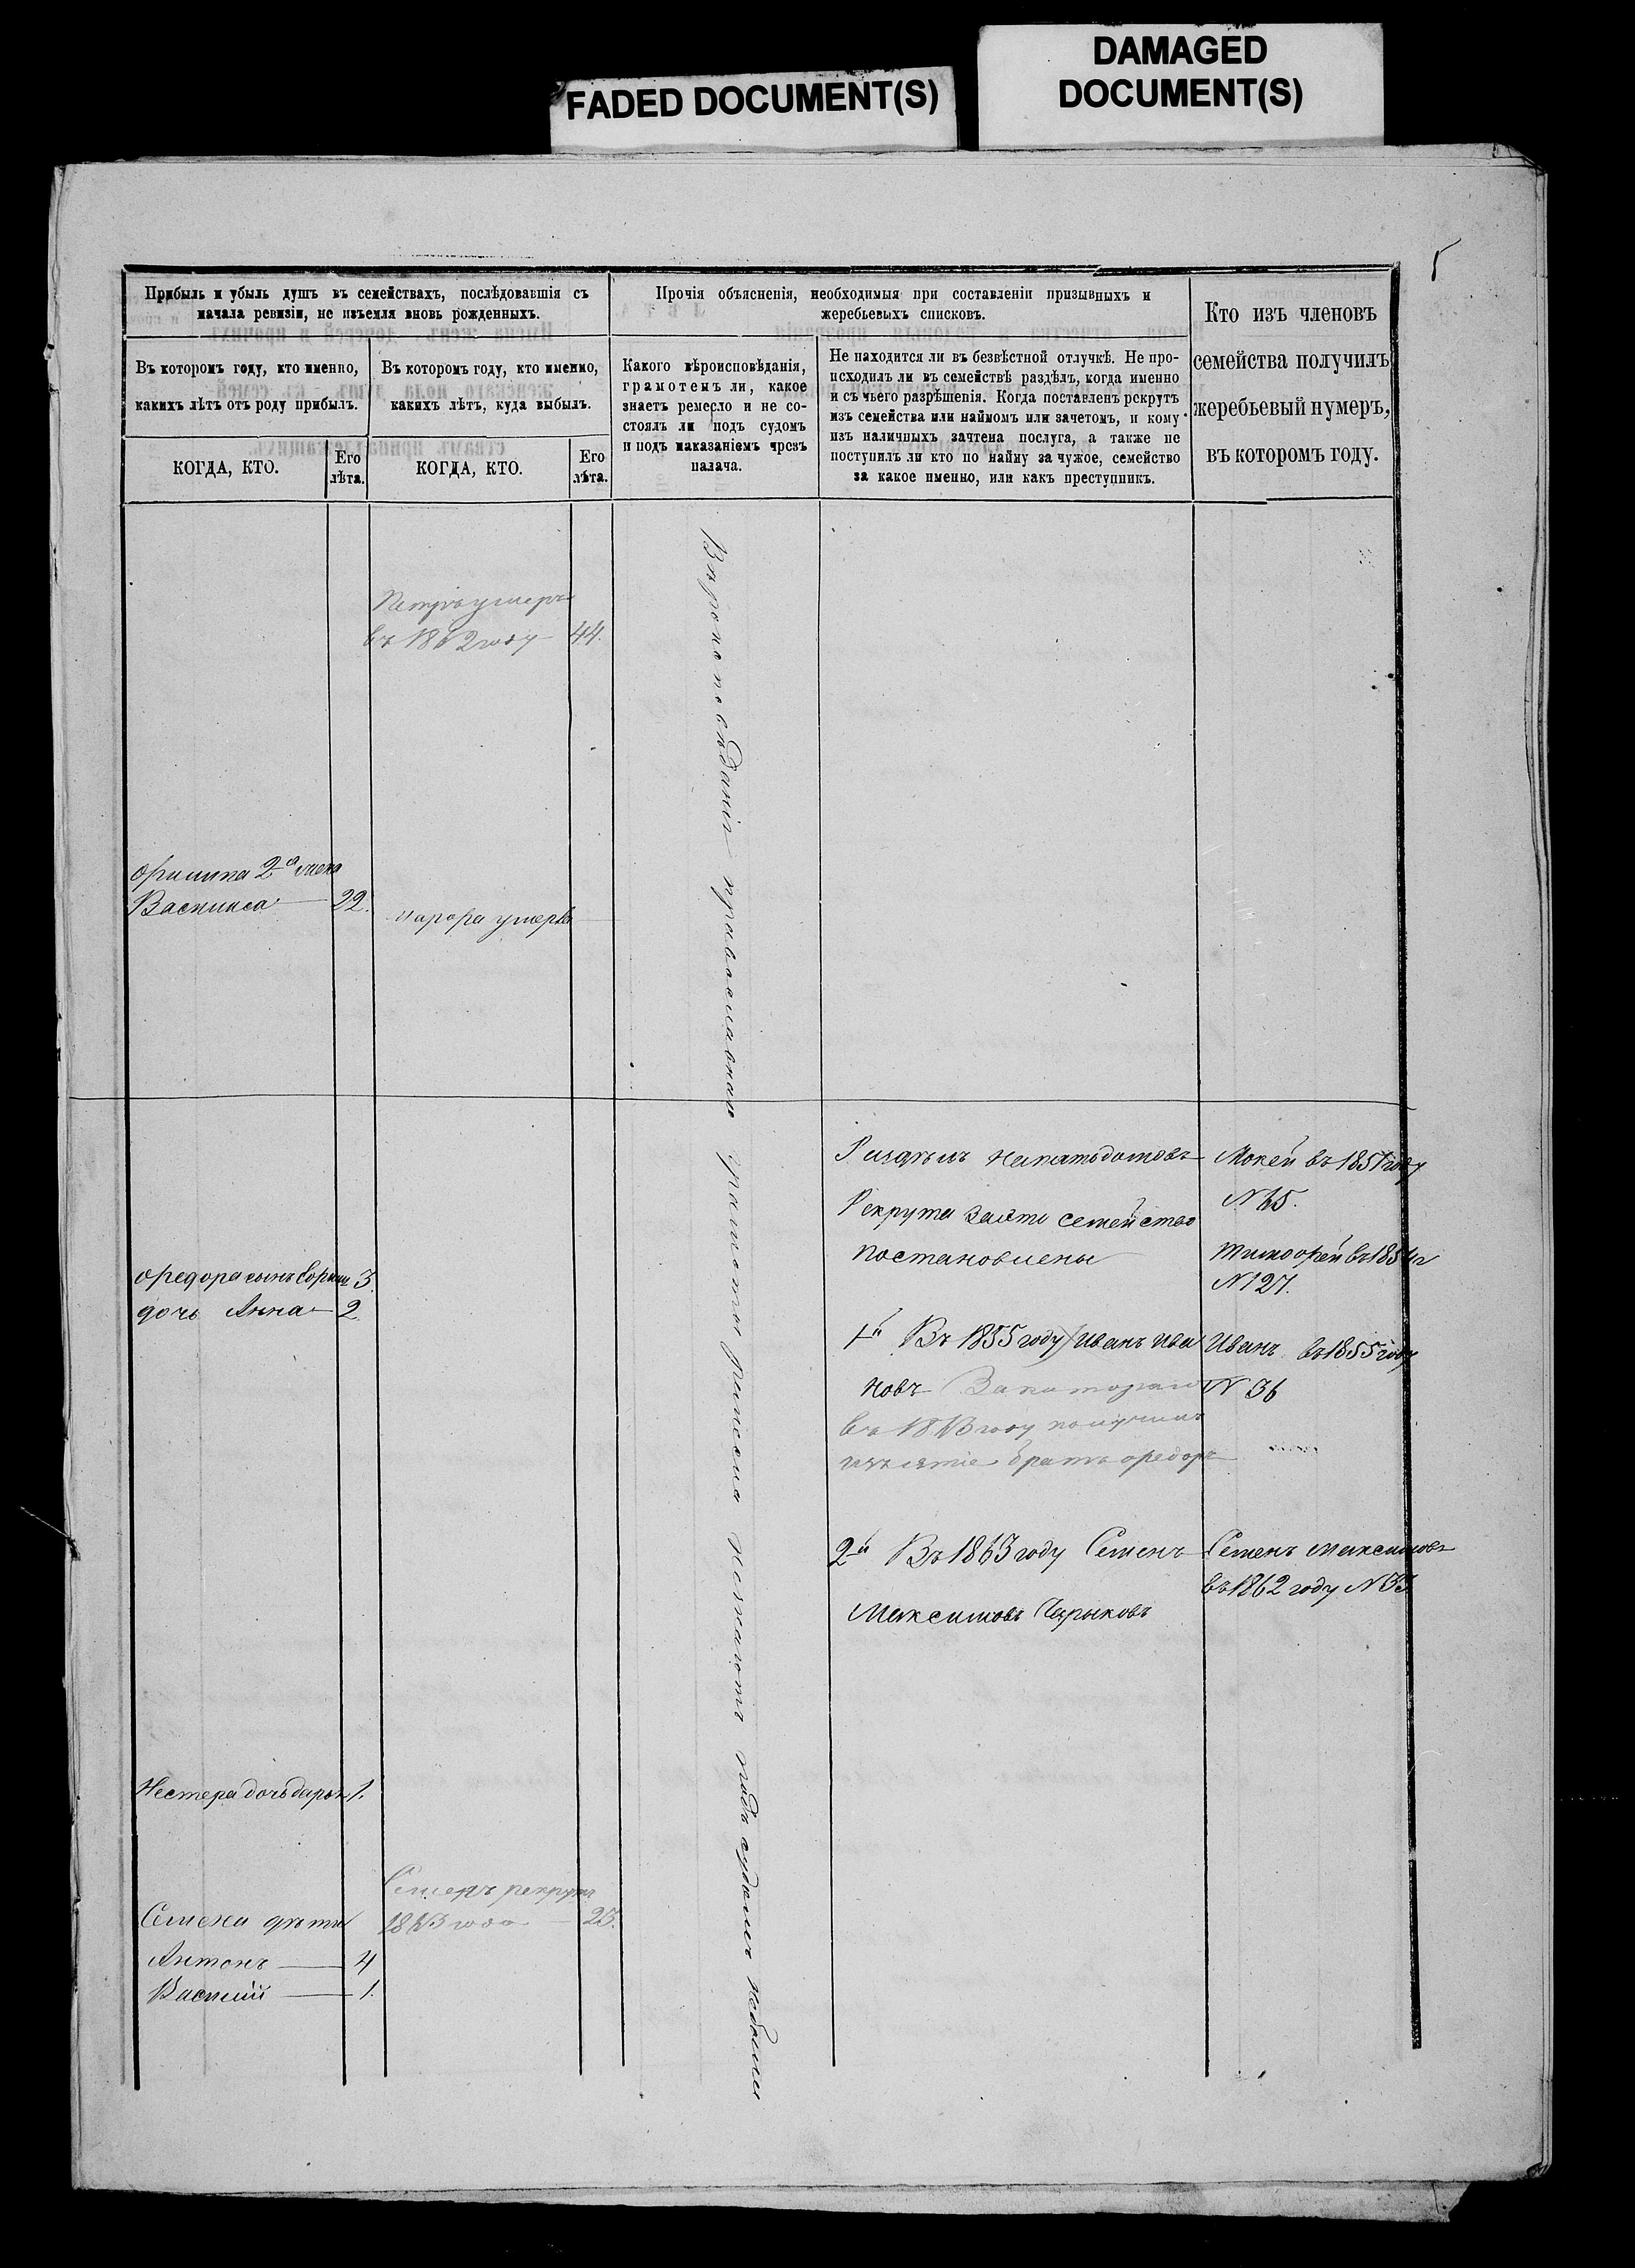 FADED DOCUMENT(S)
DAMAGED
DOCUMENT(S)
5
Прибыль и убыль душъ въ семействахъ, послѣдовавшія съ
начала ревизіи, не изъемля вновь рожденныхъ.
Прочія объясненія, необходимыя при составленіи призывныхъ и
жеребьевыхъ списковъ.
Кто изъ членовъ
семейства получилъ
жеребьевый нумеръ,
въ которомъ году.
Въ которомъ году, кто именно,
какихъ лѣтъ отъ роду прибылъ.
Въ которомъ году, кто именно,
какихъ лѣтъ, куда выбылъ.
Какого вѣроисповѣданія,
грамотенъ ли, какое
знаетъ ремесло и не со-
стоялъ ли подъ судомъ
и подъ наказаніемъ чрезъ
палача.
Не находится ли въ безвѣстной отлучкѣ. Не про-
исходилъ ли въ семействѣ раздѣлъ, когда именно
и съ чьего разрѣшенія. Когда поставленъ рекрутъ
изъ семейства или наймомъ или зачетомъ, и кому
изъ наличныхъ зачтена послуга, а также не
поступилъ ли кто по найму за чужое, семейство
за какое именно, или какъ преступникъ.
КОГДА, КТО.
Его
лѣта.
КОГДА, КТО.
Его
лѣта.
Петръ умеръ
въ 1862 году 44.
Филипа 2а жена
Василиса 22.
умерла
православнаго грамоты ремесла незнаютъ подъ судомъ небыли
на пять домовъ
Рекрута семейство
постановлены
Мокей въ 1851 году
Тимофей въ 1854 г
N 127.
Федора сынъ 3.
дочь Анна 2.
1й Въ 1855 году Иванъ Ива
новъ За котораго
въ 1863 году получилъ
изъятіе братъ Федоръ
Иванъ въ 1855 году
N 36
2й Въ 1863 году Семенъ
Максимовъ Чарыковъ
Семенъ Максимовъ
въ 1862 году N 33.
Нестера дочь Дарья 1.
Семенъ рекрутъ
1863 года 23.
Семена дѣти
Антонъ 4
Василій 1.